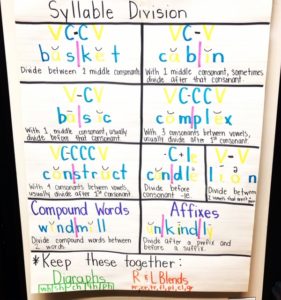 Syllable Division
VC-CV
basket
Divide between 2 middle consonants.
VC-V
cabin
With 1 middle consonant, sometimes
divide after that consonant.
V-CV
basic
With 1 middle consonant, usually
divide before that consonant.
VC-CCV
complex
With 3 consonants between vowels,
usually divide after 1st consonant.
VC-CCCV
construct
With 4 consonants between vowels,
usually divide after 1st consonant.
-C+le
candle
Divide before
consonant -le.
V-V
lion
Divide between
Compound Words
windmill
Divide compound words between
2 words.
Affixes
unkindly
Divide after a prefix and
before a suffix.
*Keep these together:
Digraphs
wh sh ch th ph
R & L Blends